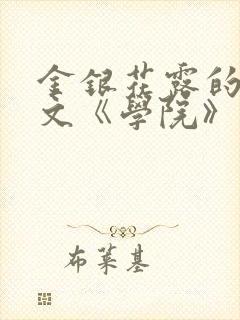 金银花露的
文《學院》
布萊基